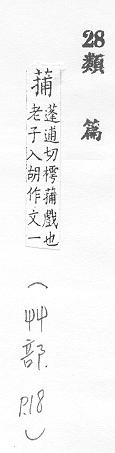 28類篇
蒱
蓬逋切樗蒱戲也
老子入胡作文一
(艸部. P.18)